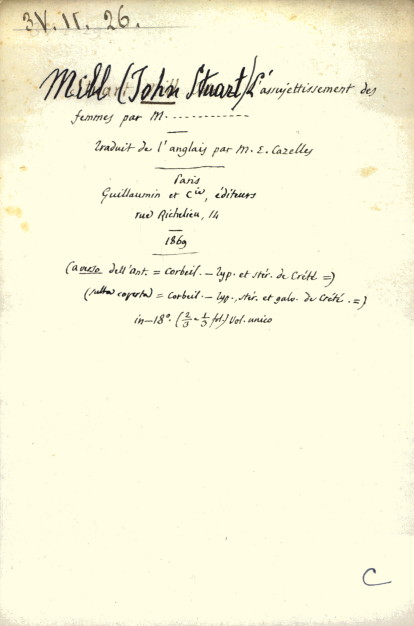 3V. II. 26.
Mill (John Stuart) L'assujettissement des
femmes par M. ------------
Traduit de l'anglais par M. E. Cazelles
Paris
Guillaumin et Cie, éditeurs
rue Richelieu, 14
1869
(a verso dell'Ant. = Corbeil. — Typ. et stér. de Crété. =)
(sulla coperta) = Corbeil. — Typ., stér. et galv. de Crété. =)
in-18°. (2/3 - 1/3 fol.) Vol. unico
C